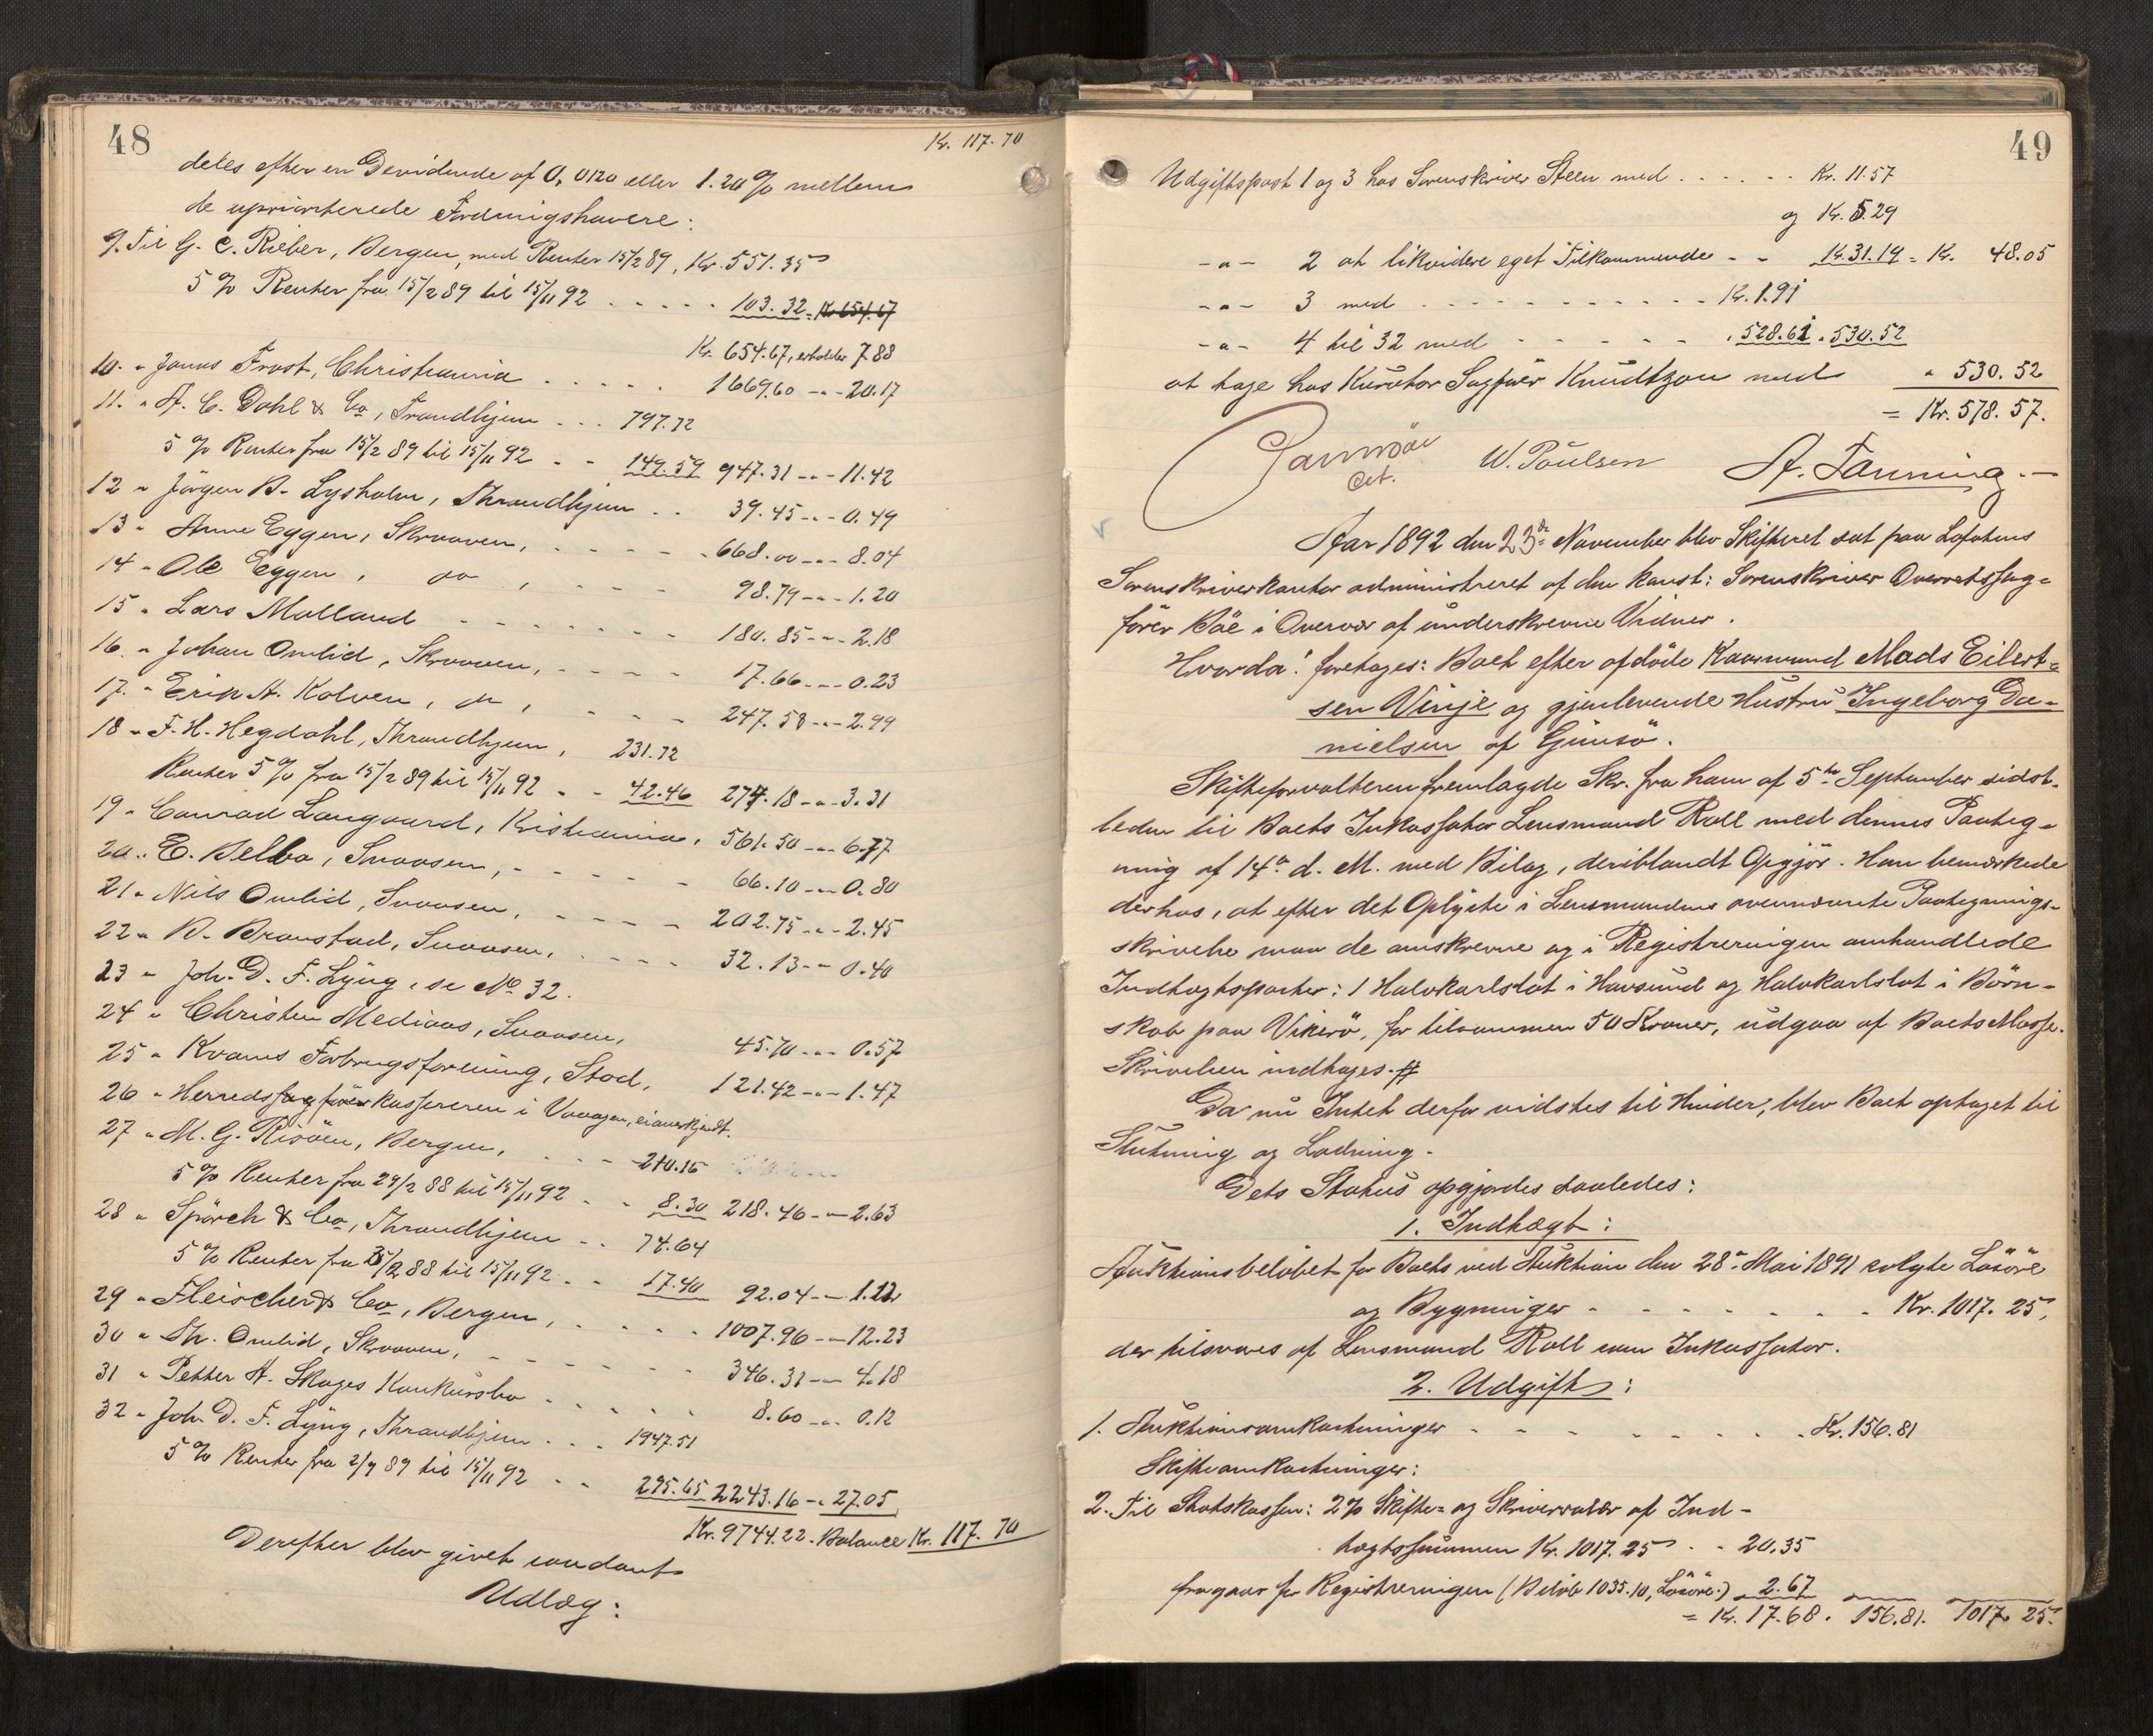 48
Kr. 117.70
deles efter en Devidende af 0,0120 eller 1.20 % mellem
de upriorterede Fordringshavere:
9. Til G. C. Rieber, Bergen, med Renter 15/2 89, Kr. 551.35
5 % Renter fra 15/2 89 til 15/11 92 . . . . . 103.32 = Kr 654.67
Kr. 654.67, erholder 7.88
10. " Jonas Frost, Christiania . . . . . 1669.60 - " - 20.17
11. " A. C. Dahl & Co, Trondhjem . . . 797.72
5 % Renter fra 15/2 89 til 15/11 92 - - 149.59 947.31 - " - 11.42
12 " Jörgen B. Lysholm, Throndhjem . . 39.45 - " - 0.49
13 " Anne Eggen, Skroaven, . . . . 668.00 - " - 8.04
14 " Ole Eggen, do , - - - 98.79 - " - 1.20
15 " Lars Molland - - - - - - - 180.85 - " - 2.18
16. " Johan Omlid, Skroaven, - - - - 17.66 - " - 0.23
17. " Erik A. Kolven, do , - - - 247.58 - " - 2.99
18 " F. H. Hegdahl, Throndhjem, 231.72
Renter 5 % fra 15/2 89 til 15/11 92 - - 42.46 274.18 - " - 3.31
19 " Conrad Langaard, Kristiania, 561.50 - " - 6.77
20 " E. Belbo, Snaasen, - - - - - 66.10 - " - 0.80
21 " Nils Omlid, Snaasen, - - - - 202.75 - " - 2.45
22 " B. Branstad, Snaasen, . . . . 32.13 - " - 0.40
23 " Joh. D. F. Lyng, se No 32.
24 " Christen Mediaas, Snaasen, 45.70 - " - 0.57
25 " Kvams Forbrugsforening, Stod, 121.42 - " - 1.47
26 " Herredskassereren i Vaagan, ei anerkjendt.
27 " M. G. Risöen, Bergen, . . . - 210.16
5 % Renter fra 29/2 88 til 15/11 92 - - 8.30 218.46 - " - 2.63
28 " Spörch & Co, Throndhjem - . 74.64
5 % Renter fra 25/2 88 til 15/11 92 - - 17.40 92.04 - " - 1.12
29 " Fleischer & Co, Bergen, . . . . . 1007.96 - " - 12.23
30 " Th. Omlid, Skroaven, - - - - - - 346.31 - " - 4.18
31 " Petter A. Skages Konkursbo - . . . . . 8.60 - " - 0.12
32 " Joh. D. F. Lyng, Throndhjem . . . 1947.51
5 % Renter fra 2/9 89 til 15/11 92 - - 295.65 2243.16 - " 27.05
Kr. 9744.22 - Balance Kr. 117.70
Derefter blev givet saadant
Udlæg:
49
Udgiftspost 1 og 3 hos Sorenskriver Steen med . . . . . . Kr. 11.57
og Kr. 5.29
- " - 2 at likvidere eget Tilkommende - - Kr. 31.19 = Kr. 48.05
- " - 3 med . . . . . . . . . . . Kr. 1.91
- " - 4 til 32 med - - - - - - " 528.61 " 530.52
at tage hos Kurator Sagfører Knudtzon med " 530.52
= Kr. 578.57.
cst. W. Poulsen A. Fanning. —
Aar 1892 den 23de November blev Skifteret sat paa Lofotens
Sorenskriverkontor administreret af den const: Sorenskriver Overretssag-
förer Böe i Overvær af underskrevne Vidner.
Hvorda! foretages: Boet efter afdöde Kaarmand Mads Eilert-
sen Vinje og gjenlevende Hustru Ingeborg Da-
nielsen af Gimsö.
Skifteforvalteren fremlagde Skr. fra ham af 5te September sidst-
leden til Boets Inkassator Lensmand Roll med dennes Paateg-
ning af 14de d. M. med Bilag, deriblandt Opgjör. Han bemærkede
derhos, at efter det Oplyste i Lensmandens ovennævnte Paategnings-
skrivelse maa de omskrevne og i Registreringen omhandlede
Indtægtsposter: 1 Halvkarlslot i Havsund og Halvkarlslot i Börn-
skab paa Vikerö, for tilsammen 50 Kroner, udgaa af Boets Masse.
Skrivelsen indtages. #
Da nu Intet derfor vidstes til Hinder, blev Boet optaget til
Slutning og Lodning.
Dets Status opgjordes saaledes:
1. Indtægt:
Auktionsbeløbet for Boets ved Auktion den 28de Mai 1891 solgte Lösöre
og Bygninger - - - - - - - Kr. 1017.25,
der tilsvares af Lensmand Roll som Inkassator.
2. Udgift:
1. Auktionsomkostninger - - - - - - - - Kr. 156.81
Skifteomkostninger:
2. Til Statskassen: 2% Skifte- og Skriversalær af Ind-
tægtssummen Kr. 1017.25 - - 20.35
fragaar for Registreringen (Belöb 1035.10, Lösöre.) 2.67
= Kr. 17.68. 156.81. 1017.25.